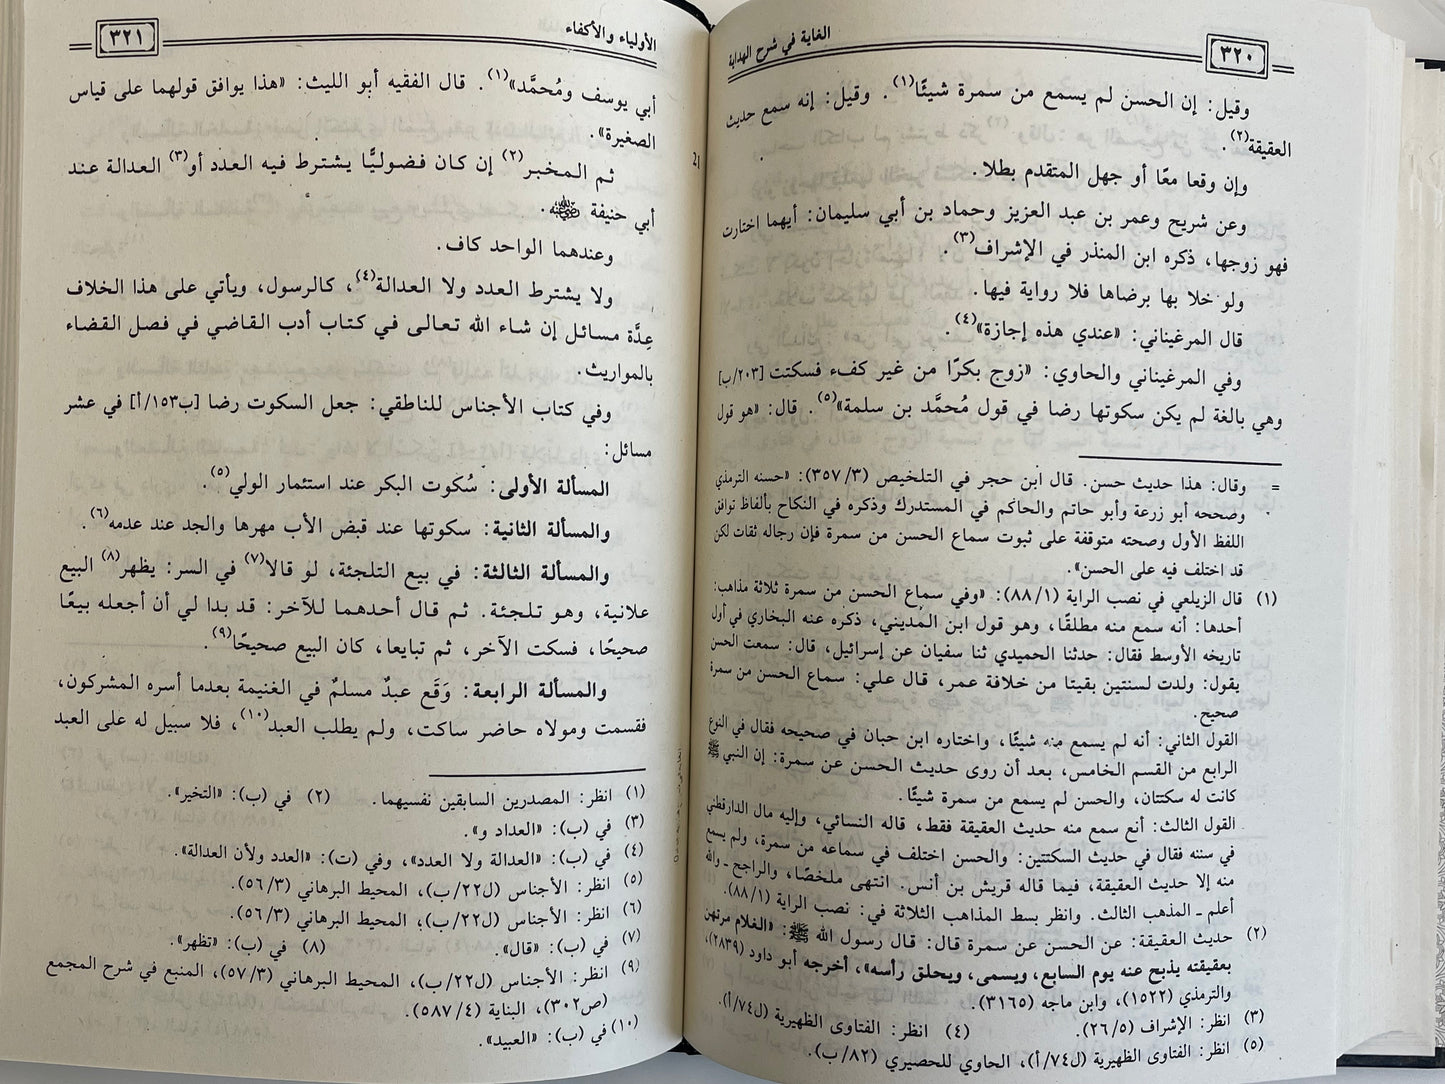 ٣٢٠
الغاية في شرح الهداية
وقيل: إن الحسن لم يسمع من سمرة شيئًا(١). وقيل: إنه سمع حديث
العقيقة(٢).
وإن وقعا معًا أو جهل المتقدم بطلا.
وعن شريح وعمر بن عبد العزيز وحماد بن أبي سليمان: أيهما اختارت
فهو زوجها، ذكره ابن المنذر في الإشراف(٣).
ولو خلا بها برضاها فلا رواية فيها.
قال المرغيناني: «عندي هذه إجازة»(٤).
وفي المرغيناني والحاوي: «زوج بكرًا من غير كفء فسكتت [٢٠٣/ب]
وهي بالغة لم يكن سكوتها رضا في قول مُحمَّد بن سلمة»(٥). قال: «هو قول
= وقال: هذا حديث حسن. قال ابن حجر في التلخيص (٣/ ٣٥٧): «حسنه الترمذي
وصححه أبو زرعة وأبو حاتم والحاكم في المستدرك وذكره في النكاح بألفاظ توافق
اللفظ الأول وصحته متوقفة على ثبوت سماع الحسن من سمرة فإن رجاله ثقات لكن
قد اختلف فيه على الحسن».
(١) قال الزيلعي في نصب الراية (١/ ٨٨): «وفي سماع الحسن من سمرة ثلاثة مذاهب:
أحدها: أنه سمع منه مطلقًا، وهو قول ابن المُديني، ذكره عنه البخاري في أول
تاريخه الأوسط فقال: حدثنا الحميدي ثنا سفيان عن إسرائيل، قال: سمعت الحسن
يقول: ولدت لسنتين بقيتا من خلافة عمر، قال علي: سماع الحسن من سمرة
صحيح.
القول الثاني: أنه لم يسمع منه شيئًا، واختاره ابن حبان في صحيحه فقال في النوع
الرابع من القسم الخامس، بعد أن روى حديث الحسن عن سمرة: إن النبي ﷺ
كانت له سكتتان، والحسن لم يسمع من سمرة شيئًا.
القول الثالث: أنع سمع منه حديث العقيقة فقط، قاله النسائي، وإليه مال الدارقطني
في سننه فقال في حديث السكتتين: والحسن اختلف في سماعه من سمرة، ولم يسمع
منه إلا حديث العقيقة، فيما قاله قريش بن أنس. انتهى ملخصًا، والراجح ـ والله
أعلم ـ المذهب الثالث. وانظر بسط المذاهب الثلاثة في: نصب الراية (١/ ٨٨).
(٢) حديث العقيقة: عن الحسن عن سمرة قال: قال رسول الله ﷺ: «الغلام مرتهن
بعقيقته يذبح عنه يوم السابع، ويسمى، ويحلق رأسه»، أخرجه أبو داود (2839)،
والترمذي (١٥٢٢)، وابن ماجه (3165).
(٣) انظر: الإشراف (٥/ ٢٦). (٤) انظر: الفتاوى الظهيرية (ل٧٤/أ).
(٥) انظر: الفتاوى الظهيرية (ل٧٤/أ)، الحاوي للحصيري (٨٢/ب).
الأولياء والأكفاء
٣٢١
أبي يوسف ومُحمَّد»(١). قال الفقيه أبو الليث: «هذا يوافق قولهما على قياس
الصغيرة».
ثم المخبر(٢) إن كان فضوليًّا يشترط فيه العدد أو(٣) العدالة عند
أبي حنيفة رضي الله عنه.
وعندهما الواحد كاف.
ولا يشترط العدد ولا العدالة(٤)، كالرسول، ويأتي على هذا الخلاف
عِدَّة مسائل إن شاء الله تعالى في كتاب أدب القاضي في فصل القضاء
بالمواريث.
وفي كتاب الأجناس للناطقي: جعل السكوت رضا [ب١٥٣/أ] في عشر
مسائل:
المسألة الأولى: سُكوت البكر عند استئمار الولي(٥).
والمسألة الثانية: سكوتها عند قبض الأب مهرها والجد عند عدمه(٦).
والمسألة الثالثة: في بيع التلجئة، لو قالا(٧) في السر: يظهر(٨) البيع
علانية، وهو تلجئة. ثم قال أحدهما للآخر: قد بدا لي أن أجعله بيعًا
صحيحًا، فسكت الآخر، ثم تبايعا، كان البيع صحيحًا(٩).
والمسألة الرابعة: وَقَع عبدٌ مسلمٌ في الغنيمة بعدما أسره المشركون،
فقسمت ومولاه حاضر ساكت، ولم يطلب العبد(١٠)، فلا سبيل له على العبد
(١) انظر: المصدرين السابقين نفسيهما. (٢) في (ب): «التخير».
(٣) في (ب): «العداد و».
(٤) في (ب): «العدالة ولا العدد»، وفي (ت): «العدد ولأن العدالة».
(٥) انظر: الأجناس (ل٢٢/ب)، المحيط البرهاني (٣/ ٥٦).
(٦) انظر: الأجناس (ل٢٢/ب)، المحيط البرهاني (٣/ ٥٦).
(٧) في (ب): «قال». (٨) في (ب): «تظهر».
(٩) انظر: الأجناس (ل٢٢/ب)، المحيط البرهاني (٣/ ٥٧)، المنبع في شرح المجمع
(ص٣٠٢)، البناية (٤/ ٥٨٧).
(١٠) في (ب): «العبيد».